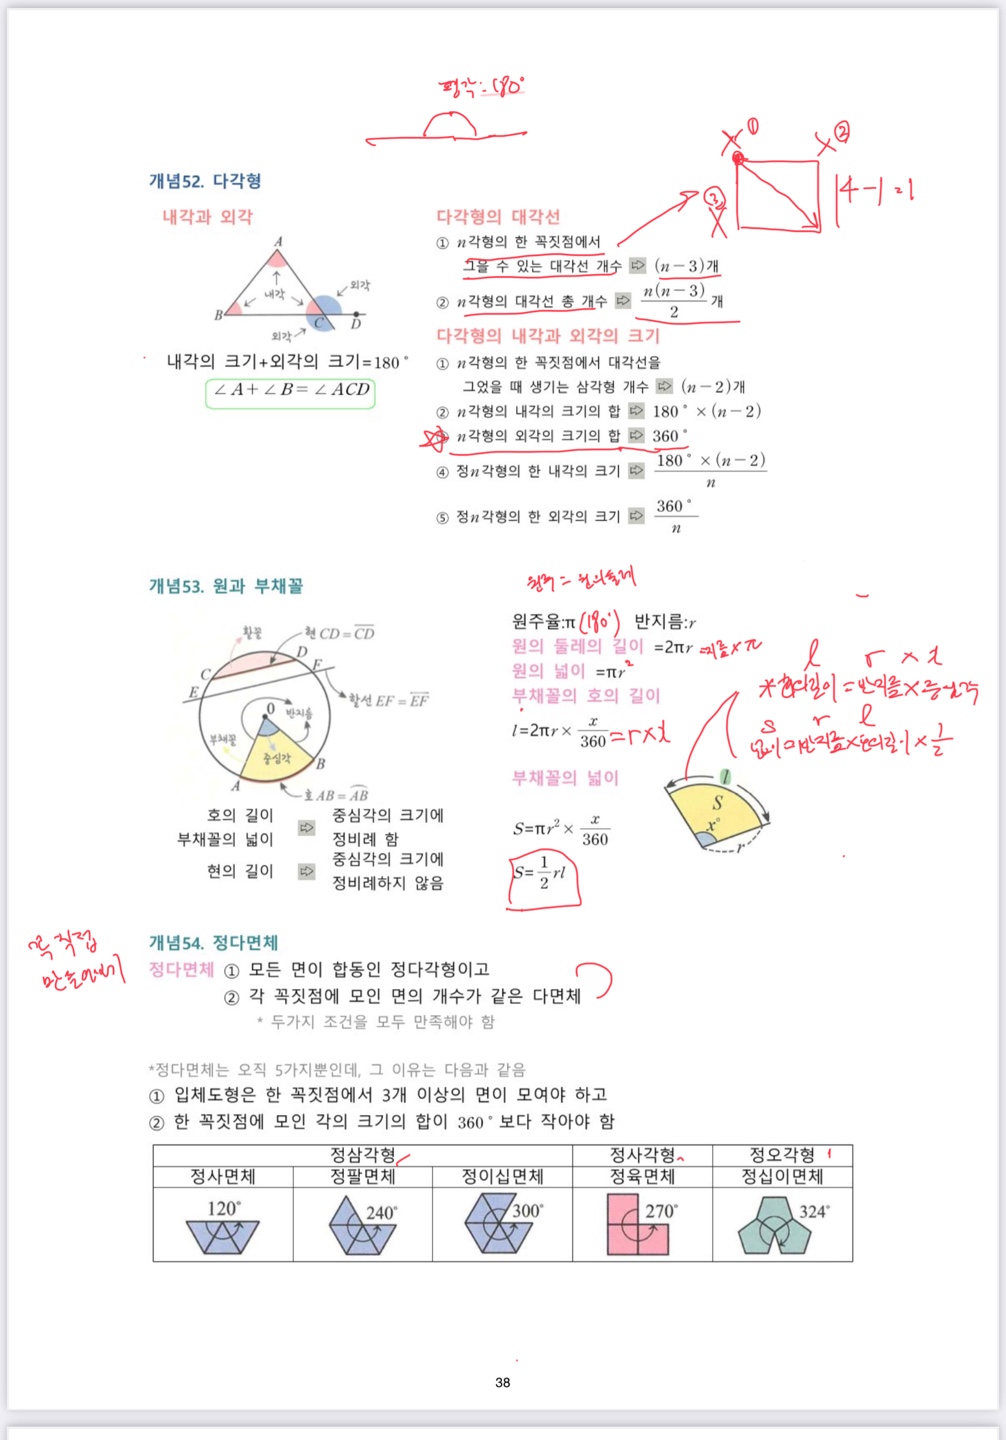 평각 : 180°
① ②
③
4-1=1
개념52. 다각형
내각과 외각
A
외각
내각
B C D
외각
내각의 크기+외각의 크기=180°
∠A+∠B=∠ACD
다각형의 대각선
① n각형의 한 꼭짓점에서
그을 수 있는 대각선 개수 ⇨ (n-3)개
② n각형의 대각선 총 개수 ⇨ n(n-3)/2 개
다각형의 내각과 외각의 크기
① n각형의 한 꼭짓점에서 대각선을
그었을 때 생기는 삼각형 개수 ⇨ (n-2)개
② n각형의 내각의 크기의 합 ⇨ 180°×(n-2)
n각형의 외각의 크기의 합 ⇨ 360°
④ 정n각형의 한 내각의 크기 ⇨ 180°×(n-2)/n
⑤ 정n각형의 한 외각의 크기 ⇨ 360°/n
개념53. 원과 부채꼴
활꼴
현 CD=CD
C D F
E
할선 EF=EF
O
반지름
부채꼴
중심각
A B
호 AB=AB
호의 길이
부채꼴의 넓이
⇨
중심각의 크기에
정비례 함
현의 길이
⇨
중심각의 크기에
정비례하지 않음
원주 = 원의둘레
원주율:π (180°) 반지름:r
원의 둘레의 길이 =2πr =지름×π
원의 넓이 =πr²
부채꼴의 호의 길이
l=2πr× x/360 = r×x
부채꼴의 넓이
S=πr²× x/360
S=1/2 rl
l r × x
*호의길이=반지름×중심각
S r l
넓이=반지름×호의길이×1/2
l
S
x°
r
꼭 직접
만들어보기
개념54. 정다면체
정다면체 ① 모든 면이 합동인 정다각형이고
② 각 꼭짓점에 모인 면의 개수가 같은 다면체
* 두가지 조건을 모두 만족해야 함
*정다면체는 오직 5가지뿐인데, 그 이유는 다음과 같음
① 입체도형은 한 꼭짓점에서 3개 이상의 면이 모여야 하고
② 한 꼭짓점에 모인 각의 크기의 합이 360°보다 작아야 함
정삼각형 정사각형 정오각형
정사면체 정팔면체 정이십면체 정육면체 정십이면체
120° 240° 300° 270° 324°
38